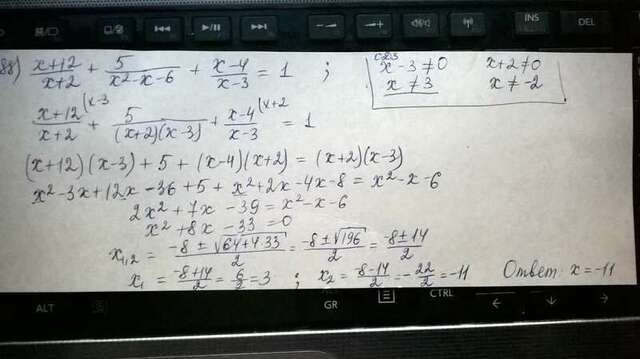 INS
DEL
88) (x+12)/(x+2) + 5/(x²-x-6) + (x-4)/(x-3) = 1 ;
ОДЗ
x-3≠0 x+2≠0
x≠3 x≠-2
(x+12)/(x+2) (x-3 + 5/((x+2)(x-3)) + (x-4)/(x-3) (x+2 = 1
(x+12)(x-3)+5+(x-4)(x+2)=(x+2)(x-3)
x²-3x+12x-36+5+x²+2x-4x-8=x²-x-6
2x²+7x-39=x²-x-6
x²+8x-33=0
x₁,₂ = (-8±√(64+4·33))/2 = (-8±√196)/2 = (-8±14)/2
x₁ = (-8+14)/2 = 6/2 = 3 ; x₂ = (-8-14)/2 = -22/2 = -11 Ответ: x=-11
ALT
GR
CTRL